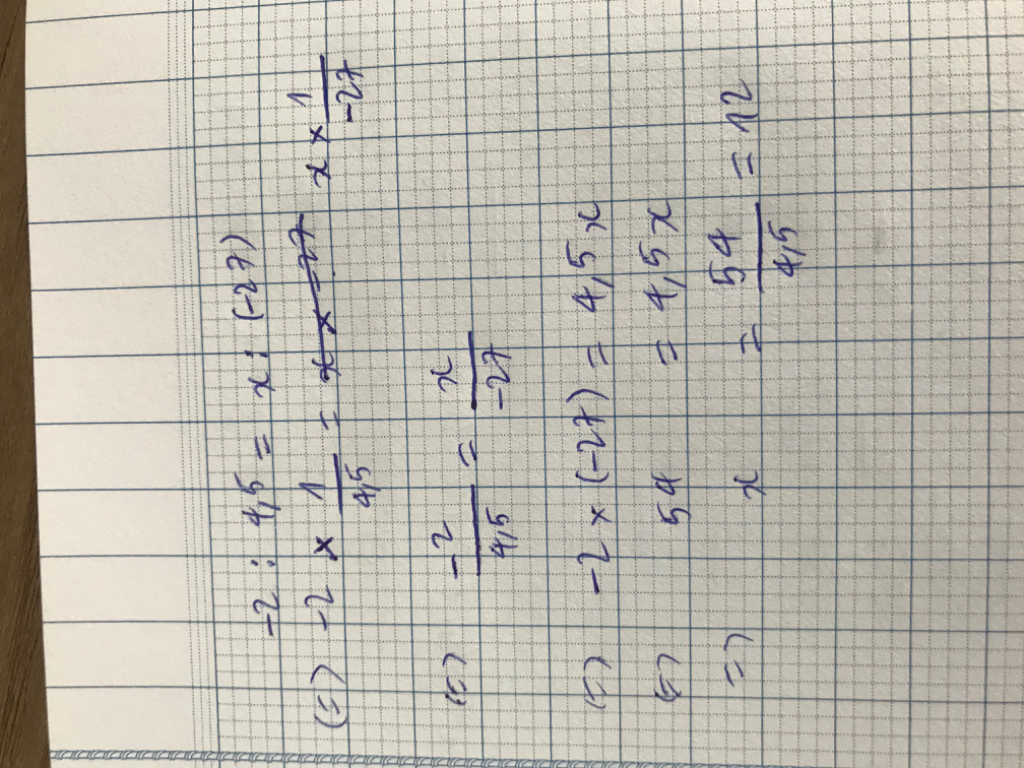 -2 : 4,5 = x : (-27)
(=) -2 × 1/4,5 = x × -27 x × 1/-27
(=) -2/4,5 = x/-27
(=) -2 × (-27) = 4,5 x
(=) 54 = 4,5 x
=) x = 54/4,5 = 12